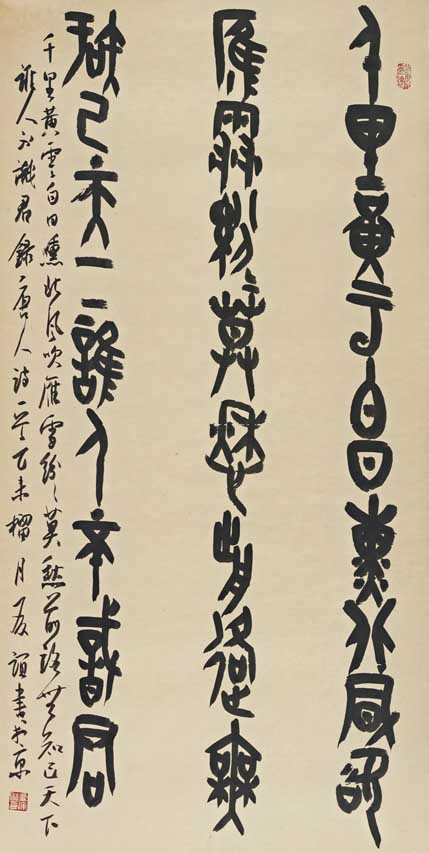 千里黄云白日熏北風吹
雁雪紛〻莫愁前路無
知己天下誰人不識君
千里黄雲白日曛北風吹雁雪紛〻莫愁前路無知己天下
誰人不識君 錄唐人詩一首 乙未榴月 誼書於京